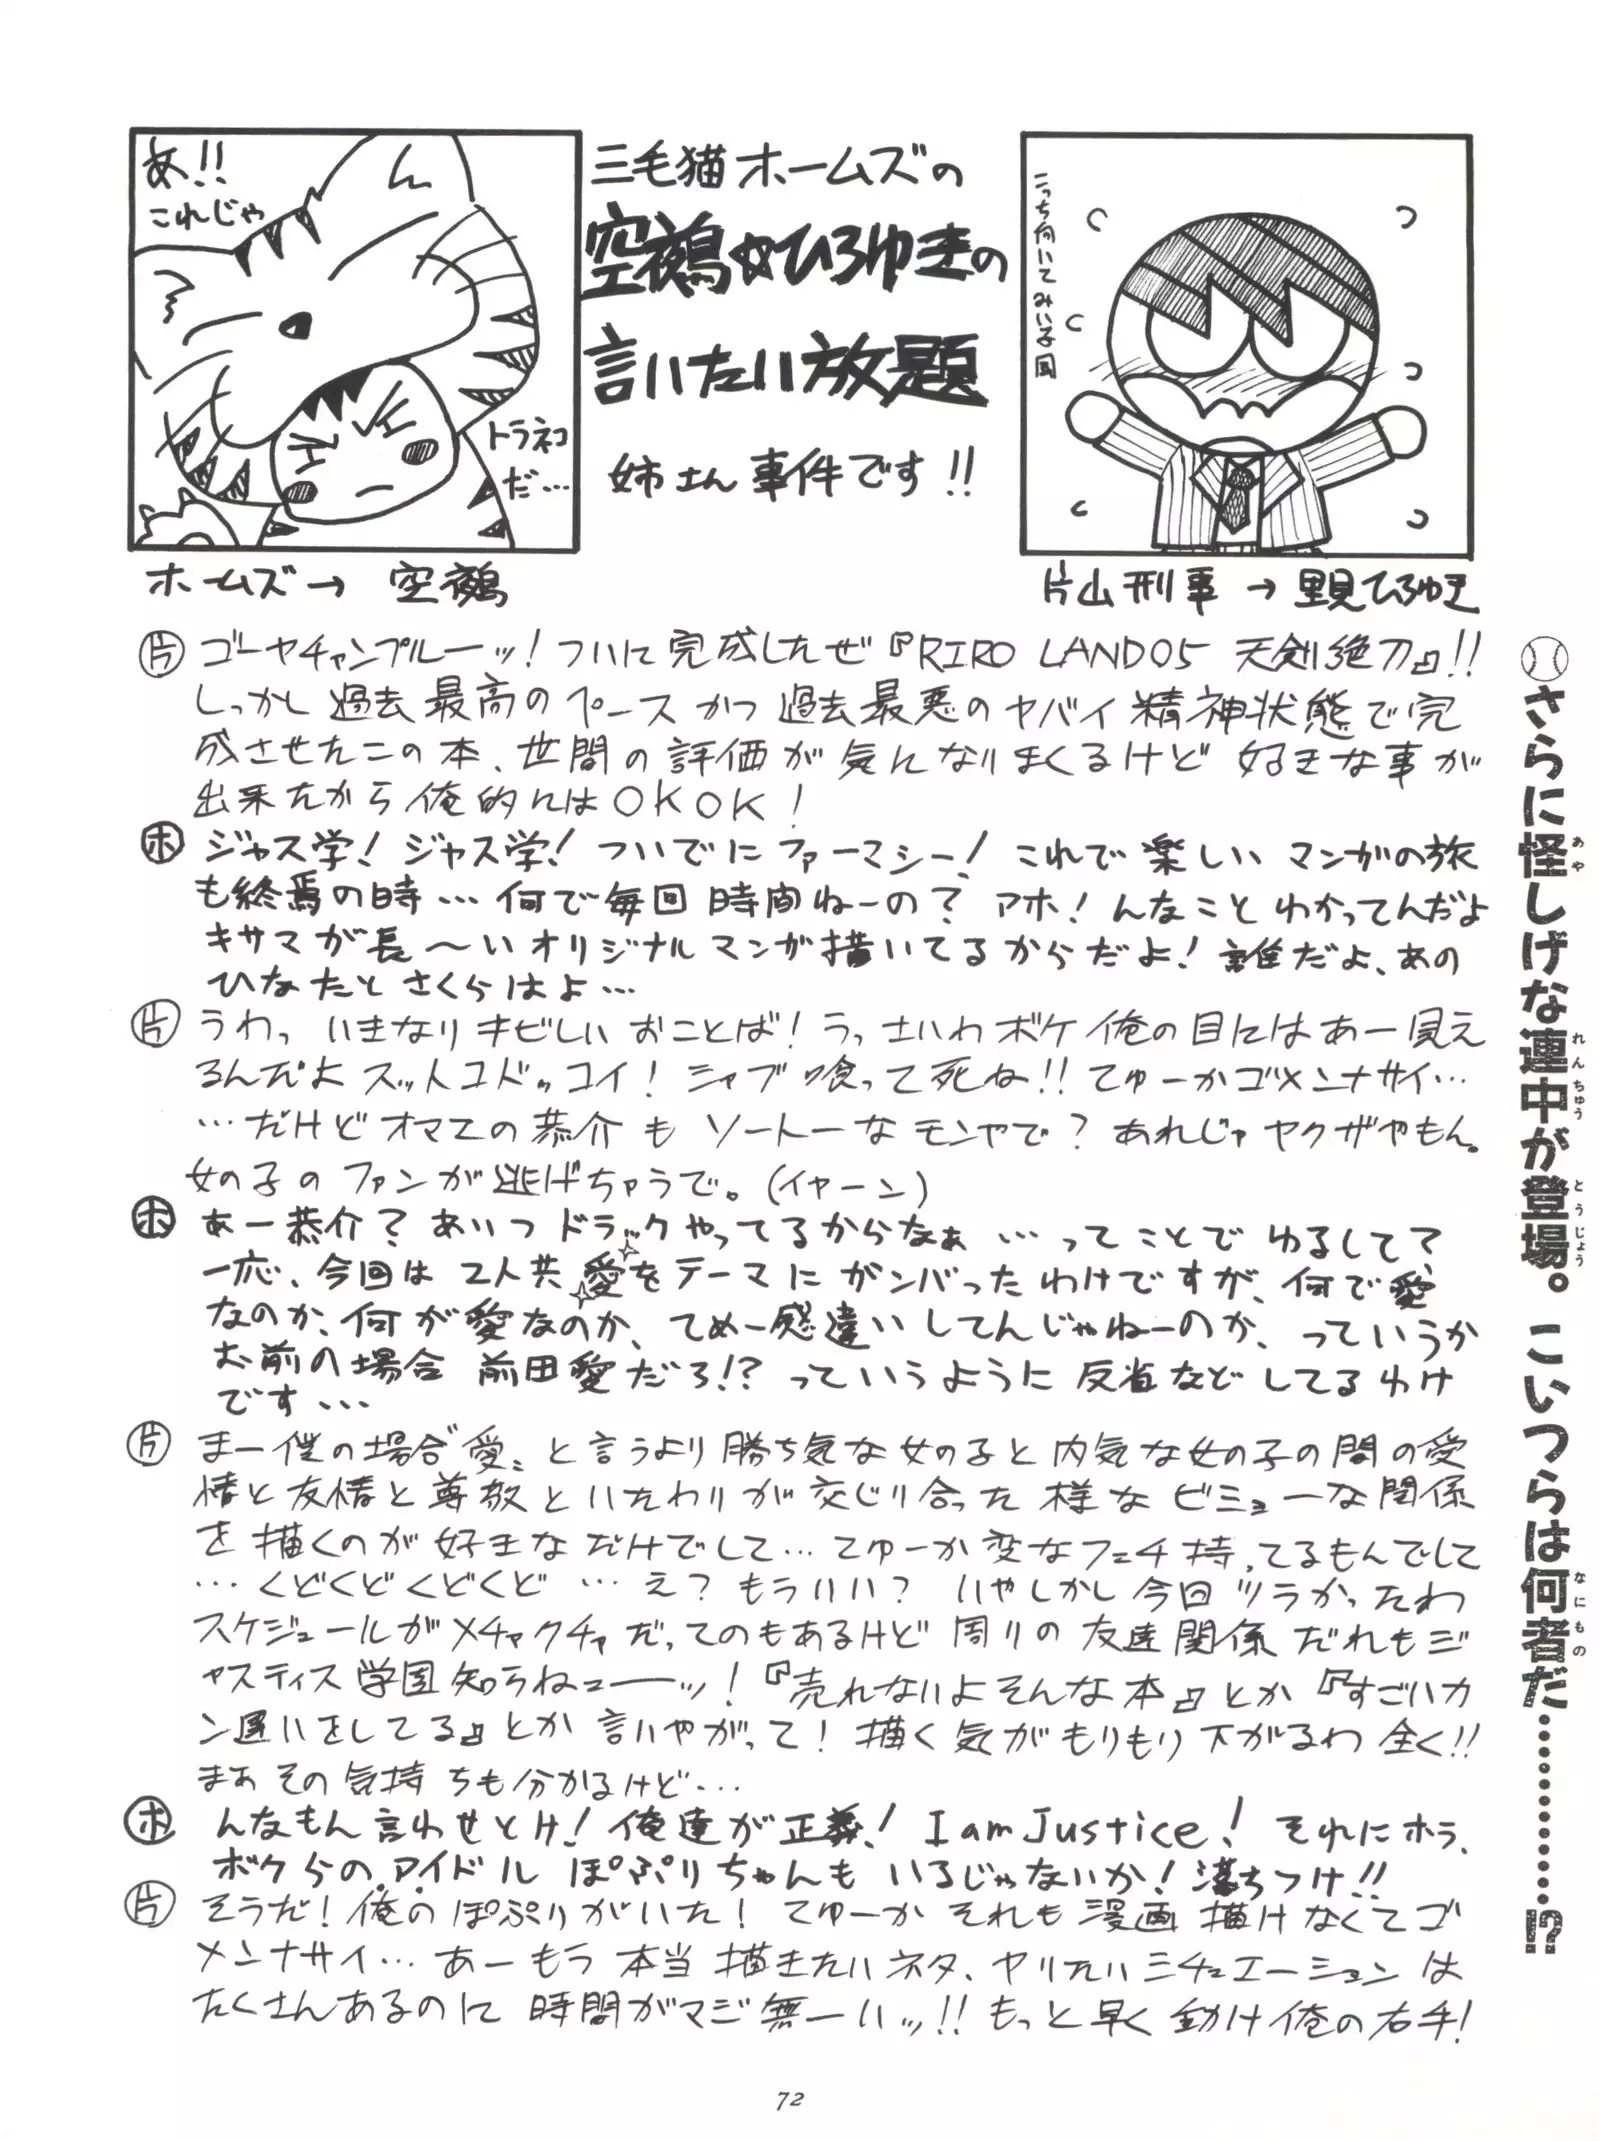 あ!!
これじゃ
トラネコ
だ…
ホームズ→ 空鵺
三毛猫ホームズの
空鵺☆ひろゆきの
言いたい放題
姉さん事件です!!
こっち向いてみい子風
片山刑事→里見ひろゆき
片 ゴーヤチャンプルーッ!ついに完成したぜ『RIRO LAND05 天剣絶刀』!!
しっかし過去最高のペースかつ過去最悪のヤバイ精神状態で完
成させたこの本、世間の評価が気になりまくるけど好きな事が
出来たから俺的にはOKOK!
ホ ジャス学!ジャス学!ついでにファーマシー!これで楽しいマンガの旅
も終焉の時…何で毎回時間ねーの?アホ!んなことわかってんだよ
キサマが長〜いオリジナルマンガ描いてるからだよ!誰だよ、あの
ひなたとさくらはよ…
片 うわっいきなりキビしいおことば!うっさいわボケ俺の目にはあー見え
るんだよスットコドッコイ!シャブ喰って死ね!!てゆーかゴメンナサイ…
…だけどオマエの恭介もソートーなモンやで?あれじゃヤクザやもん。
女の子のファンが逃げちゃうで。(イヤーン)
ホ あー恭介?あいつドラックやってるからなぁ…ってことでゆるして?
一応、今回は2人共愛をテーマにガンバったわけですが、何で愛
なのか、何が愛なのか、てめー感違いしてんじゃねーのか、っていうか
お前の場合前田愛だろ!?っていうように反省などしてるわけ
です…
片 まー僕の場合“愛”と言うより勝ち気な女の子と内気な女の子の間の愛
情と友情と尊敬といたわりが交じり合った様なビミョーな関係
を描くのが好きなだけでして…てゆーか変なフェチ持ってるもんでして
…くどくどくどくど…え?もういい?いやしかし今回ツラかったわ
スケジュールがメチャクチャだってのもあるけど周りの友達関係だれもジ
ャスティス学園知らねェーーッ!『売れないよそんな本』とか『すごいカ
ン違いをしてる』とか言いやがって!描く気がもりもり下がるわ全く!!
まぁその気持ちも分かるけど…
ホ んなもん言わせとけ!俺達が正義!I am Justice!それにホラ、
ボクらのアイドルぽぷりちゃんもいるじゃないか!落ちつけ!!
片 そうだ!俺のぽぷりがいた!てゆーかそれも漫画描けなくてゴ
メンナサイ…あーもう本当描きたいネタ、ヤりたいシチュエーションは
たくさんあるのに時間がマジ無ーいッ!!もっと早く動け俺の右手!
さらに怪しげな連中が登場。こいつらは何者だ……………!?
あや
れんちゅう
とうじょう
なにもの
72